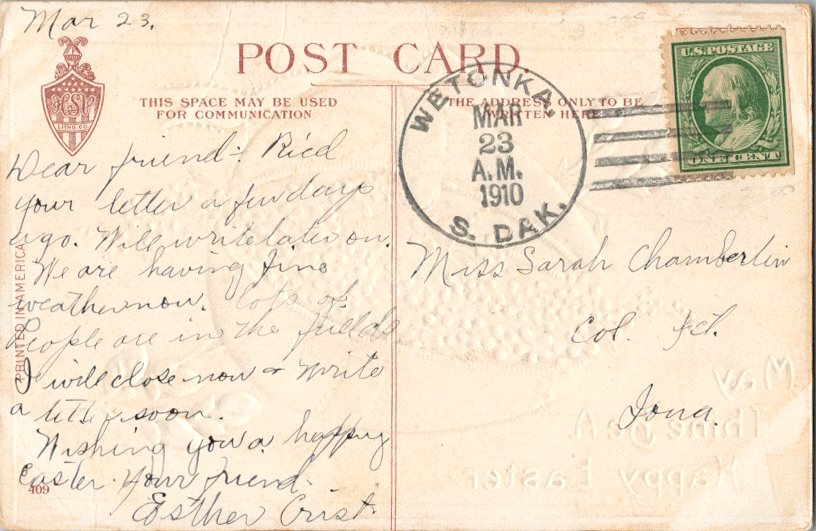 Mar 23.
POST CARD.
THIS SPACE MAY BE USED
FOR COMMUNICATION
THE ADDRESS ONLY TO BE
WRITTEN HERE
H.S.V.
LITHO. CO.
WETONKA,
MAR
23
A.M.
1910
S. DAK.
U.S. POSTAGE
ONE CENT
Dear friend: Ric'd
your letter a few days
ago. Will write later on.
We are having fine
weather now. lots of
people are in the fields
I will close now & write
a letter soon.
Wishing you a happy
Easter. Your friend
Esther Crist
Miss Sarah Chamberlin
Col. Jct.
Iowa.
PRINTED IN AMERICA
409
May
Thine be A
Happy Easter